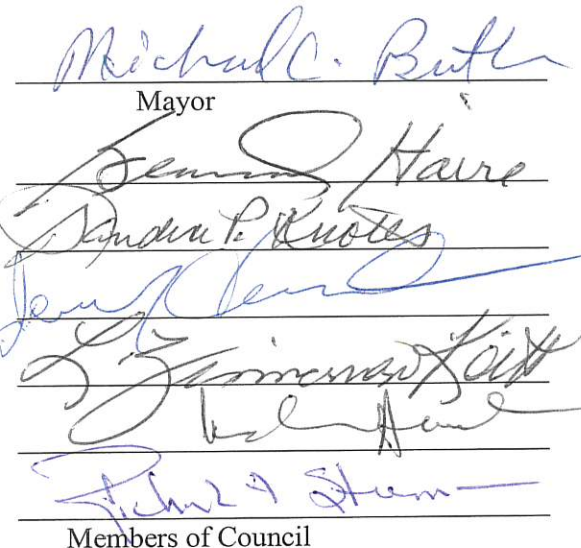 Michael C. Butler
Mayor
Haire
Sandra P. Knotts
L. Zimmerman Keitt
Richard F Stroman
Members of Council